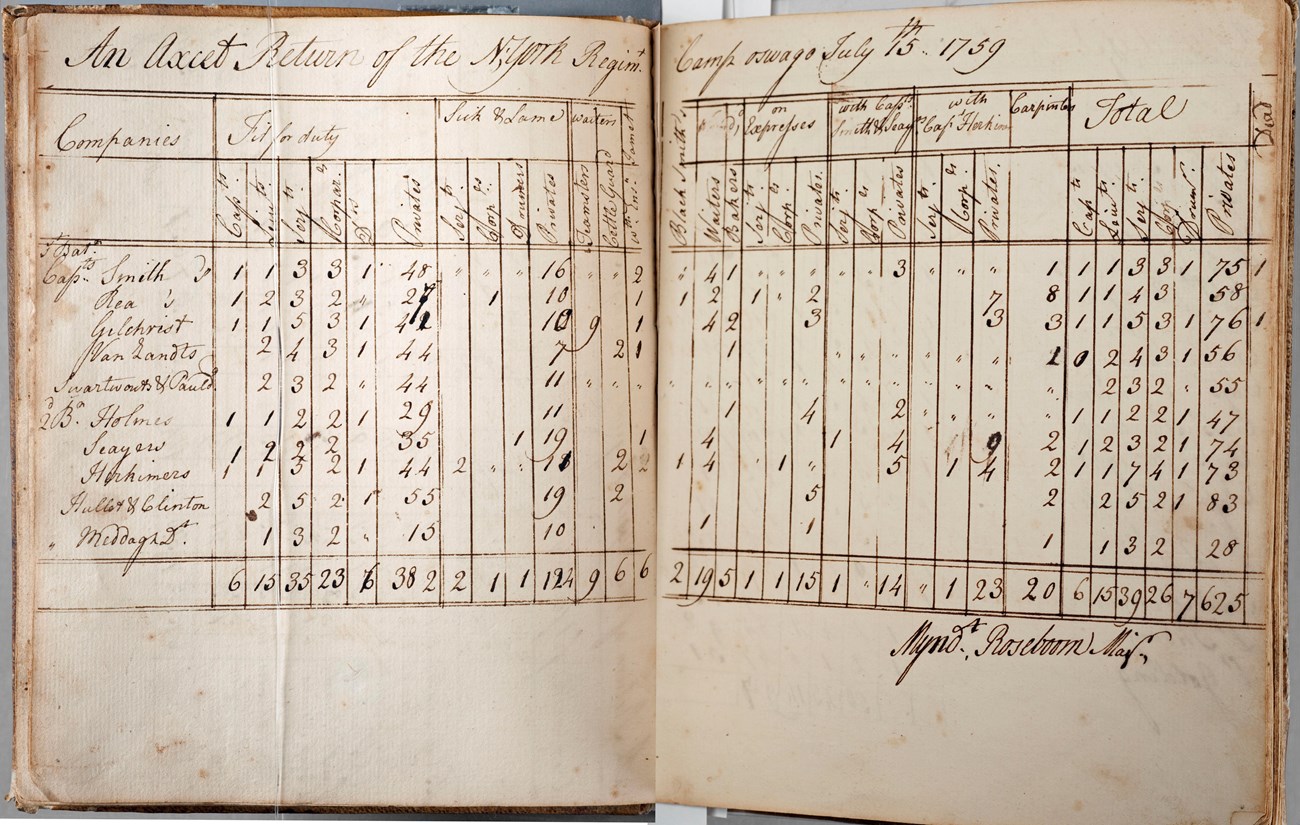 An Axcet Return of the N: York Regimt. Camp oswago July 15th.. 1759
Companies Fit for duty Sick & Lame waiters Black Smiths on Expresses with Capts. Smith & Seayrs with Capt Herkim Carpinters Total Dead
Capts. Liuts. Serjts. Corpar.s Ds Privates Serjts. Corp.s Drumers Privates Teamsters Cettle Guard Waters Bakers Serjts. Corp.s Privates. Serjts. Corps Privates Serjts Corp.s Privates. Capts Liuts. Serjts. Corps Drums. Privates
1 Batn.
Capts. Smith Do 1 1 3 3 1 48 " " " " 16 " " 2 " 4 1 " " " " " 3 " " " 1 1 1 3 3 1 75 1
Rea 's 1 2 3 2 " 27 1 10 1 1 2 1 " 2 7 8 1 1 4 3 58
Gilchrist 1 1 5 3 1 42 10 9 1 4 2 3 3 3 1 1 5 3 1 76 1
Van Zandts 2 4 3 1 44 7 2 1 1 " " " " " " 1 0 2 4 3 1 56
Swartwouts & Pauld 2 3 2 " 44 11 " " " " " " " " " " " " " " " " 2 3 2 " 55
2d Bn. Holmes 1 1 2 2 1 29 11 1 4 2 " " " " 1 1 2 2 1 47
Seayers 1 2 2 2 35 1 19 1 4 1 4 9 2 1 2 3 2 1 74
Herkimers 1 1 5 2 1 44 2 " " 11 2 2 1 4 1 " 5 1 4 2 1 1 7 4 1 73
Hullet & Clinton 2 5 2 1 55 19 2 5 2 2 5 2 1 83
" Meddagh Dt. 1 3 2 " 15 10 1 1 1 1 3 2 28
6 15 35 23 6 382 2 1 1 124 9 6 6 2 19 5 1 1 15 1 " 14 " 1 23 20 6 15 39 26 7 625
Myndt. Roseboom Majr.